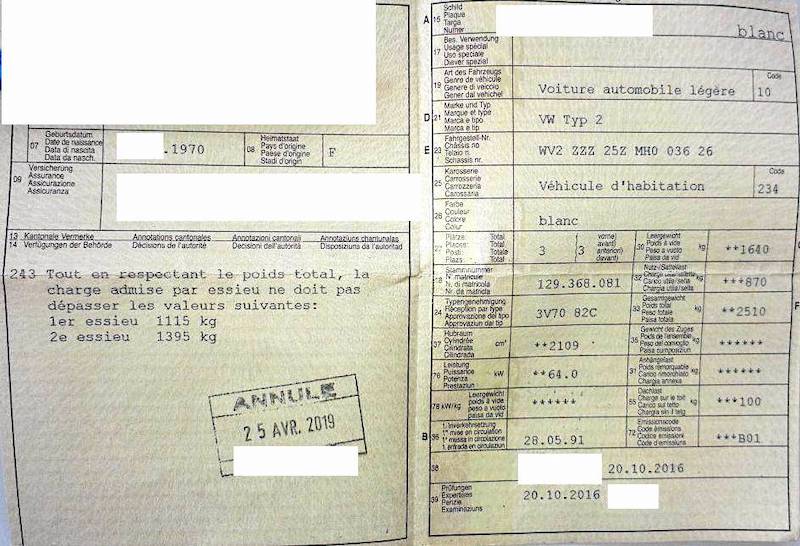 07
Geburtsdatum
Date de naissance
Data di nascita
Data da nasch.
.1970
08
Heimatstaat
Pays d'origine
Paese d'origine
Stadi d'origin
F
09
Versicherung
Assurance
Assicurazione
Assicuranza
13 Kantonale Vermerke Annotations cantonales Annotazioni cantonali Annotaziuns chantunalas
14 Verfügungen der Behörde Décisions de l'autorité Decisioni dell'autorità Disposiziuns da l'autoritad
243 Tout en respectant le poids total, la
charge admise par essieu ne doit pas
dépasser les valeurs suivantes:
1er essieu 1115 kg
2e essieu 1395 kg
ANNULE
25 AVR. 2019
A 15
Schild
Plaque
Targa
Numer
blanc
17
Bes. Verwendung
Usage spécial
Uso speciale
Diever spezial
19
Art des Fahrzeugs
Genre de véhicule
Genere di veicolo
Gener dal vehichel
Voiture automobile légère
Code
10
D 21
Marke und Typ
Marque et type
Marca e tipo
Marca e tip
VW Typ 2
E 23
Fahrgestell-Nr.
Châssis no
Telaio n.
Schassis nr.
WV2 ZZZ 25Z MH0 036 26
25
Karosserie
Carrosserie
Carrozzeria
Carossaria
Véhicule d'habitation
Code
234
26
Farbe
Couleur
Colore
Colur
blanc
Plätze
Places
Posti
Plazs
Total
Total
Totale
Total
3
3
vorne)
avant)
anteriori)
davant)
30
Leergewicht
Poids à vide
Peso a vuoto
Paisa da vid
kg
**1640
18
Stammnummer
N° matricule
N. di matricola
Nr. da matricla
129.368.081
32
Nutz-/Sattellast
Charge utile/sellette
Carico utile/sella
Chargia utila/sella
kg
***870
24
Typengenehmigung
Réception par type
Approvazione del tipo
Approvaziun dal tip
3V70 82C
33
Gesamtgewicht
Poids total
Peso totale
Paisa totala
kg
**2510
F
37
Hubraum
Cylindrée
Cilindrata
Cilindrada
cm³
**2109
35
Gewicht des Zuges
Poids de l'ensemble
Peso del convoglio
Paisa cumposiziun
kg
76
Leistung
Puissance
Potenza
Prestaziun
kW
**64.0
31
Anhängelast
Poids remorquable
Carico rimorchiato
Chargia annexa
kg
78 kW/kg
Leergewicht
poids à vide
peso a vuoto
paisa da vid
******
55
Dachlast
Charge sur le toit
Carico sul tetto
Chargia sin il tetg
kg
***100
B 36
1. Inverkehrsetzung
1re mise en circulation
1a messa in circolazione
1. entrada en circulaziun
28.05.91
72
Emissionscode
Code émissions
Codice emissioni
Code d'emissiuns
***B01
38
20.10.2016
39
Prüfungen
Expertises
Perizie
Examinaziuns
20.10.2016